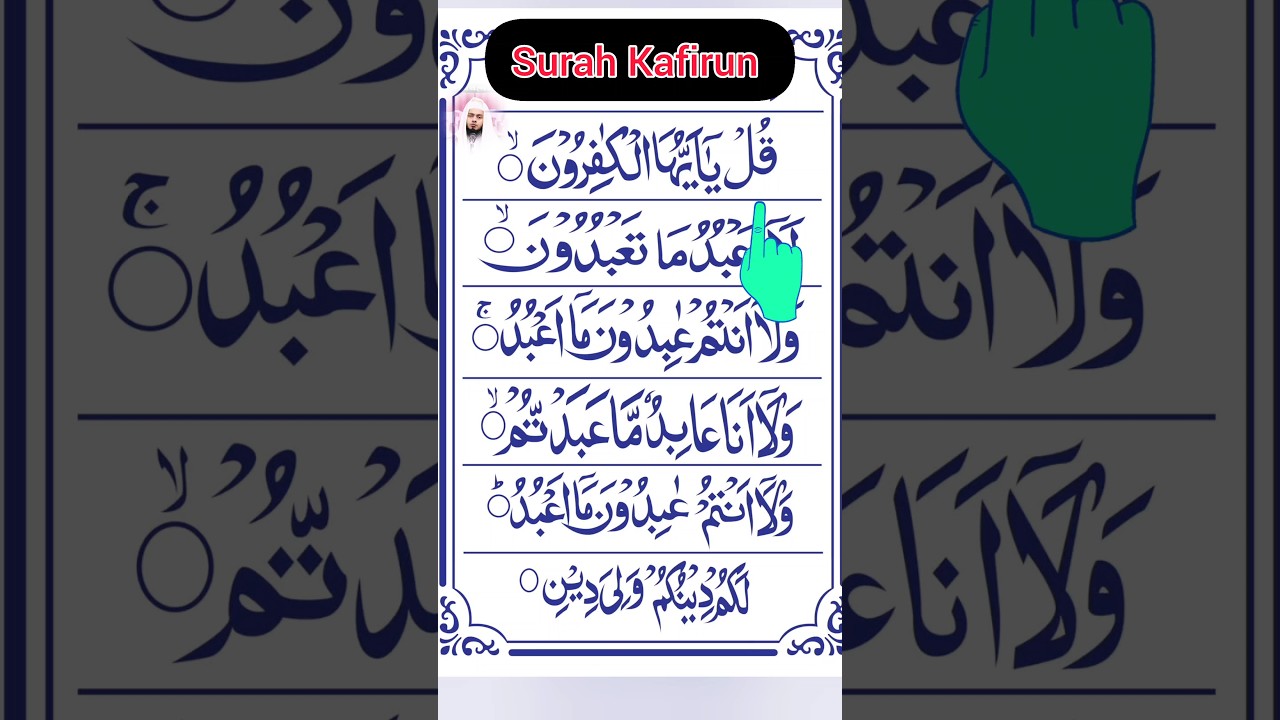 Surah Kafirun
قُلْ يٰۤاَيُّهَا الْكٰفِرُوْنَ ۙ
لَاۤ اَعْبُدُ مَا تَعْبُدُوْنَ ۙ
وَلَاۤ اَنْتُمْ عٰبِدُوْنَ مَاۤ اَعْبُدُ ۚ
وَلَاۤ اَنَا عَابِدٌ مَّا عَبَدْتُّمْ ۙ
وَلَاۤ اَنْتُمْ عٰبِدُوْنَ مَاۤ اَعْبُدُ ؕ
لَكُمْ دِيْنُكُمْ وَلِيَ دِيْنِ